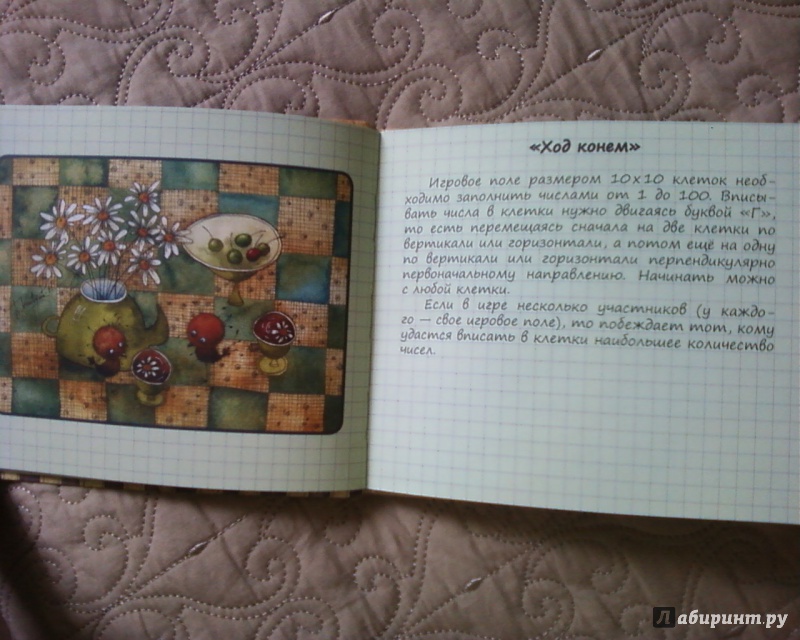 «Ход конем»
Игровое поле размером 10х10 клеток необ-
ходимо заполнить числами от 1 до 100. Вписы-
вать числа в клетки нужно двигаясь буквой «Г»,
то есть перемещаясь сначала на две клетки по
вертикали или горизонтали, а потом ещё на одну
по вертикали или горизонтали перпендикулярно
первоначальному направлению. Начинать можно
с любой клетки.
Если в игре несколько участников (у каждо-
го — свое игровое поле), то побеждает тот, кому
удастся вписать в клетки наибольшее количество
чисел.
Лабиринт.ру